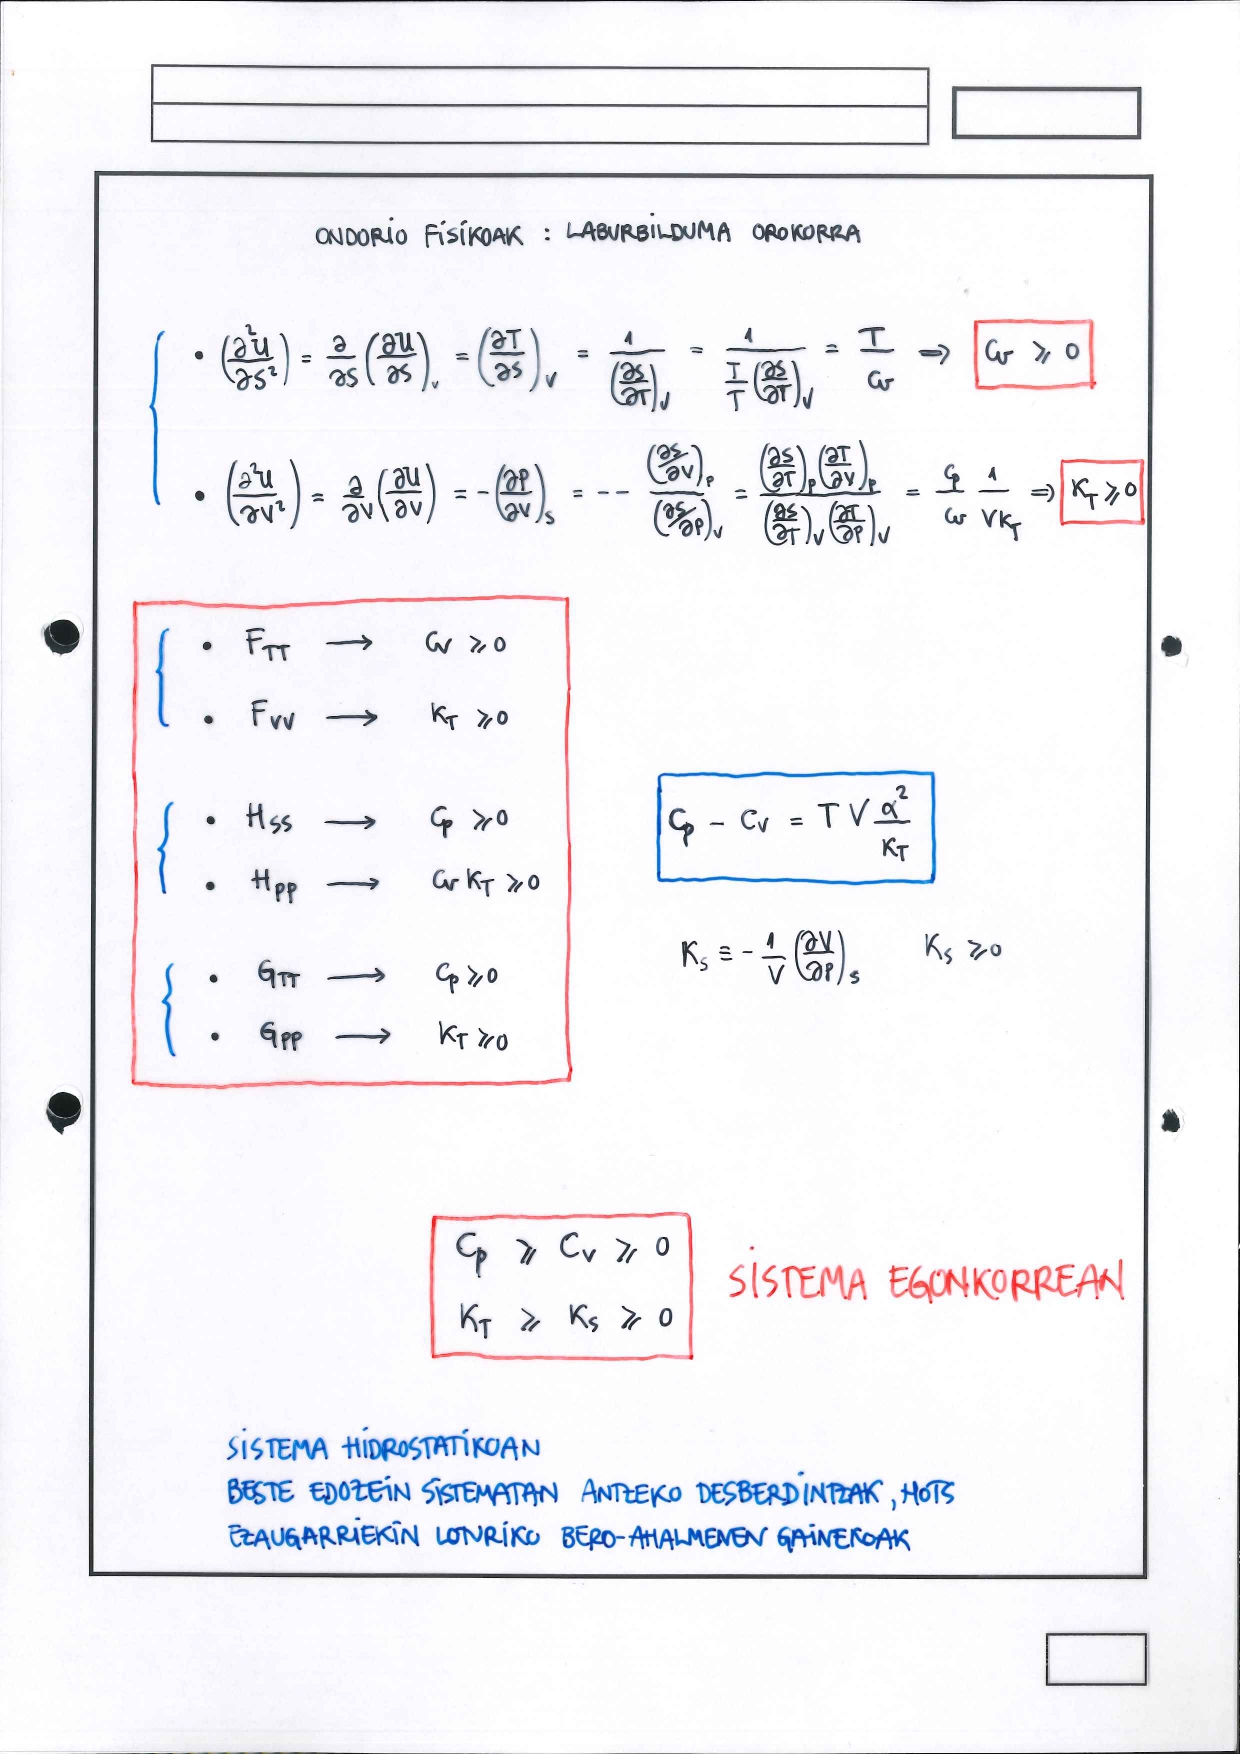 ONDORIO FISIKOAK : LABURBILDUMA OROKORRA
• (∂²U/∂S²) = ∂/∂S (∂U/∂S)_V = (∂T/∂S)_V = 1/(∂S/∂T)_V = 1/(T/T (∂S/∂T)_V) = T/Cv ⇒ Cv ⩾ 0
• (∂²U/∂V²) = ∂/∂V (∂U/∂V) = -(∂P/∂V)_S = -- (∂S/∂V)_P/(∂S/∂P)_V = (∂S/∂T)_P (∂T/∂V)_P/(∂S/∂T)_V (∂T/∂P)_V = Cp/Cv 1/(V K_T) ⇒ K_T ⩾ 0
• F_TT → Cv ⩾ 0
• F_VV → K_T ⩾ 0
• H_SS → Cp ⩾ 0
• H_PP → Cv K_T ⩾ 0
• G_TT → Cp ⩾ 0
• G_PP → K_T ⩾ 0
Cp - Cv = T V α²/K_T
K_S ≡ - 1/V (∂V/∂P)_S K_S ⩾ 0
Cp ⩾ Cv ⩾ 0
K_T ⩾ K_S ⩾ 0
SISTEMA EGONKORREAN
SISTEMA HIDROSTATIKOAN
BESTE EDOZEIN SISTEMATAN ANTZEKO DESBERDINTZAK, HOTS
EZAUGARRIEKIN LOTURIKO BERO-AHALMENEN GAINEKOAK